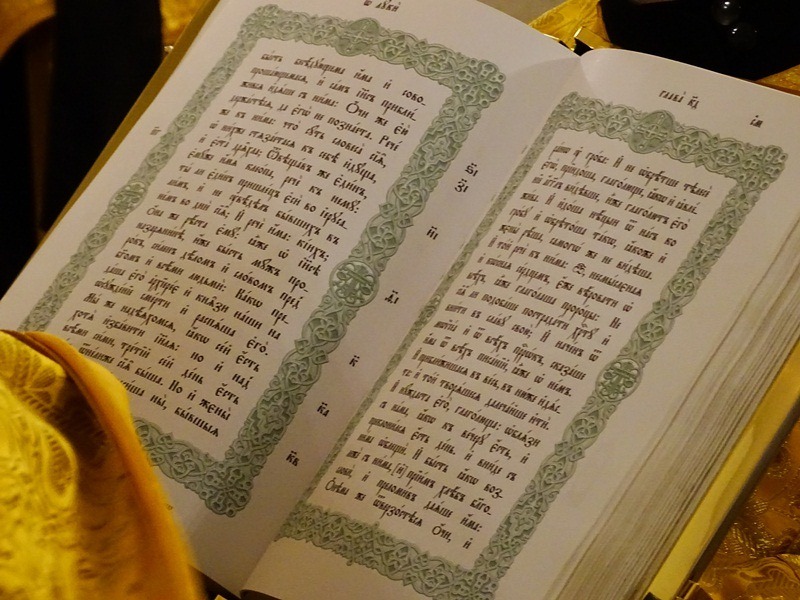 Ѿ лꙋкѝ
бы́сть бесѣ́дꙋющема и҆́ма и҆ сово-
прошáющемасѧ, и҆ сáмъ і҆и҃съ прибли́-
живсѧ и҆дѧ́ше съ ни́ма: Ѻ҆́чи же є҆ю̀
держáстѣсѧ, да є҆гѡ̀ не познáета. Речé
же къ ни́ма: что̀ сꙋ́ть словеса̀ сїѧ̑,
ѡ҆ ни́хже стѧзáетасѧ къ себѣ̀ и҆дꙋ̑ща,
и҆ є҆ста̀ дрѧ̑хла; Ѿвѣщáвъ же є҆ди́нъ,
є҆мꙋ́же и҆́мѧ клеóпа, речé къ немꙋ̀:
ты́ ли є҆ди́нъ пришлéцъ є҆сѝ во і҆ерⷭ҇ли́мъ,
и҆ не ᲂу҆вѣ́дѣ бы́вшихъ въ
нéмъ во дни̑ сїѧ̑; И҆ речé и҆́ма: кі́ихъ;
Ѻ҆́на же рѣ́ста є҆мꙋ̀: ꙗ҆̀же ѡ҆ і҆и҃сѣ
назарѧни́нѣ, и҆́же бы́сть мꙋ́жъ про-
ро́къ, си́ленъ дѣ́ломъ и҆ сло́вомъ пред̾
бг҃омъ и҆ всѣ́ми людьмѝ: Кáкѡ пре-
дáша є҆го̀ а҆рхїерє́є и҆ кнѧ̑зи нáши на
ѡ҆сꙋждéнїе смéрти и҆ распѧ́ша є҆го̀.
Мы́ же надѣ́ѧхомсѧ, ꙗ҆́кѡ се́й є҆́сть
хотѧ̀ и҆збáвити і҆и҃лѧ: но и҆ над̾
всѣ́ми си́ми, трéтїй се́й дéнь є҆́сть
ѿне́лиже сїѧ̑ бы́ша. Но и҆ жєны̀
ны̀, бы́вшыѧ
з҃і
и҃і
ѳ҃і
к҃
к҃а
к҃в
Главà к҃д
рáнѡ ᲂу҆ гро́ба: И҆ не ѡ҆брѣ́тшѧ тѣлесѐ
є҆гѡ̀, прїидо́ша, глаго́лющѧ, ꙗ҆́кѡ и҆ ꙗ҆влéнїе
а҆́гг҃лъ ви́дѣша, и҆̀же глаго́лютъ є҆го̀
жи́ва. И҆ и҆до́ша нѣ́цыи ѿ нáсъ ко
гро́бꙋ и҆ ѡ҆брѣто́ша тáкѡ, ꙗ҆́коже и҆
жєны̀ рѣ́ша, самогѡ́ же не ви́дѣша.
И҆ то́й речé къ ни́ма: ѽ, несмы́слєннаѧ
и҆ кѡ́снаѧ сéрдцемъ, є҆́же вѣ́ровати ѡ҆
всѣ́хъ, ꙗ҆̀же глаго́лаша прⷪ҇ро́цы: Не
сїѧ̑ ли подобáше пострадáти хрⷭ҇тꙋ̀ и҆
вни́ти въ слáвꙋ свою̀; И҆ начéнъ ѿ
мѡѷсéа и҆ ѿ всѣ́хъ прⷪ҇рѡ́къ, сказáше
и҆́ма ѿ всѣ́хъ писáнїй, ꙗ҆̀же ѡ҆ нéмъ.
И҆ прибли́жишасѧ въ вéсь, въ ню́же и҆дѧ́с-
та: и҆ то́й творѧ́шесѧ далечáйше и҆тѝ.
И҆ нꙋ́ждаста є҆го̀, глагѡ́люща: ѡ҆блѧзѝ
съ нáма, ꙗ҆́кѡ къ вéчерꙋ є҆́сть, и҆
приклони́лсѧ є҆́сть дéнь. и҆ вни́де съ
ни́ма ѡ҆блещѝ. И҆ бы́сть ꙗ҆́кѡ воз-
лежé съ ни́ма, [и҆] прїи́мъ хлѣ́бъ бл҃го-
словѝ, и҆ преломи́въ даѧ́ше и҆́ма:
Ѻ҆́нѣма же ѿверзо́стѣсѧ ѻ҆́чи, и҆